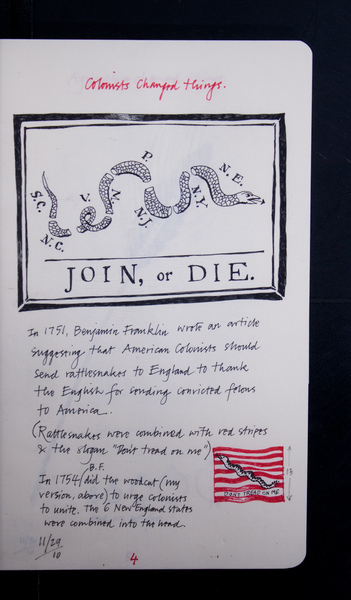 Colonists Changed things.
P.
N.E.
S.C.
V.
M.
N.Y.
N.J.
N.C.
JOIN, or DIE.
In 1751, Benjamin Franklin wrote an article
suggesting that American Colonists should
send rattlesnakes to England to thank
the English for sending convicted felons
to America.
(Rattlesnakes were combined with red stripes
& the slogan "Don't tread on me")
B.F.
In 1754 / did the woodcut (my
version, above) to urge colonists
to unite. The 6 New England states
were combined into the head.
DON'T TREAD ON ME
13
11/29
10
4